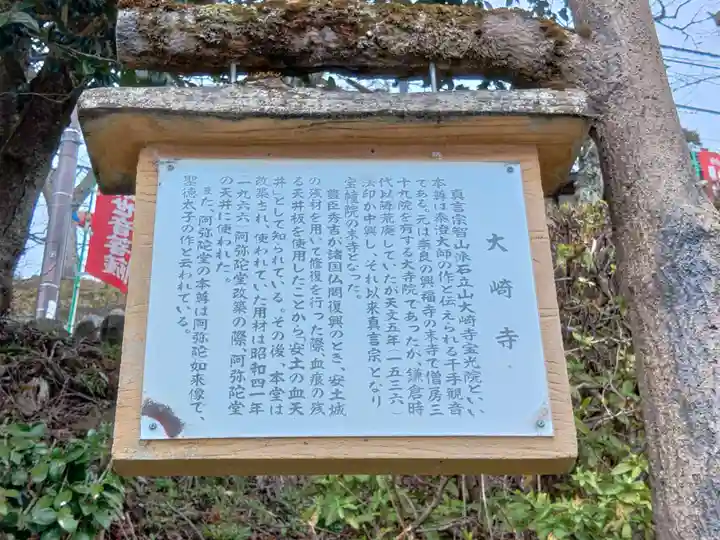 大崎寺
真言宗智山派石立山大崎寺宝光院といい
本尊は泰澄大師の作と伝えられる千手観音
である。元は奈良の興福寺の末寺で僧房三
十九院を有する大寺院であったが、鎌倉時
代以降荒廃していたが天文五年(一五三六)
法印が中興し、それ以来真言宗となり
宝幢院の末寺となった。
豊臣秀吉が諸国仏閣復興のとき、安土城
の残材を用いて修復を行った際、血痕の残
る天井板を使用したことから「安土の血天
井」として知られている。その後、本堂は
改築され、使われていた用材は昭和四一年
一九六六、阿弥陀堂改築の際、阿弥陀堂
の天井に使われた。
また、阿弥陀堂の本尊は阿弥陀如来像で、
聖徳太子の作と云われている。